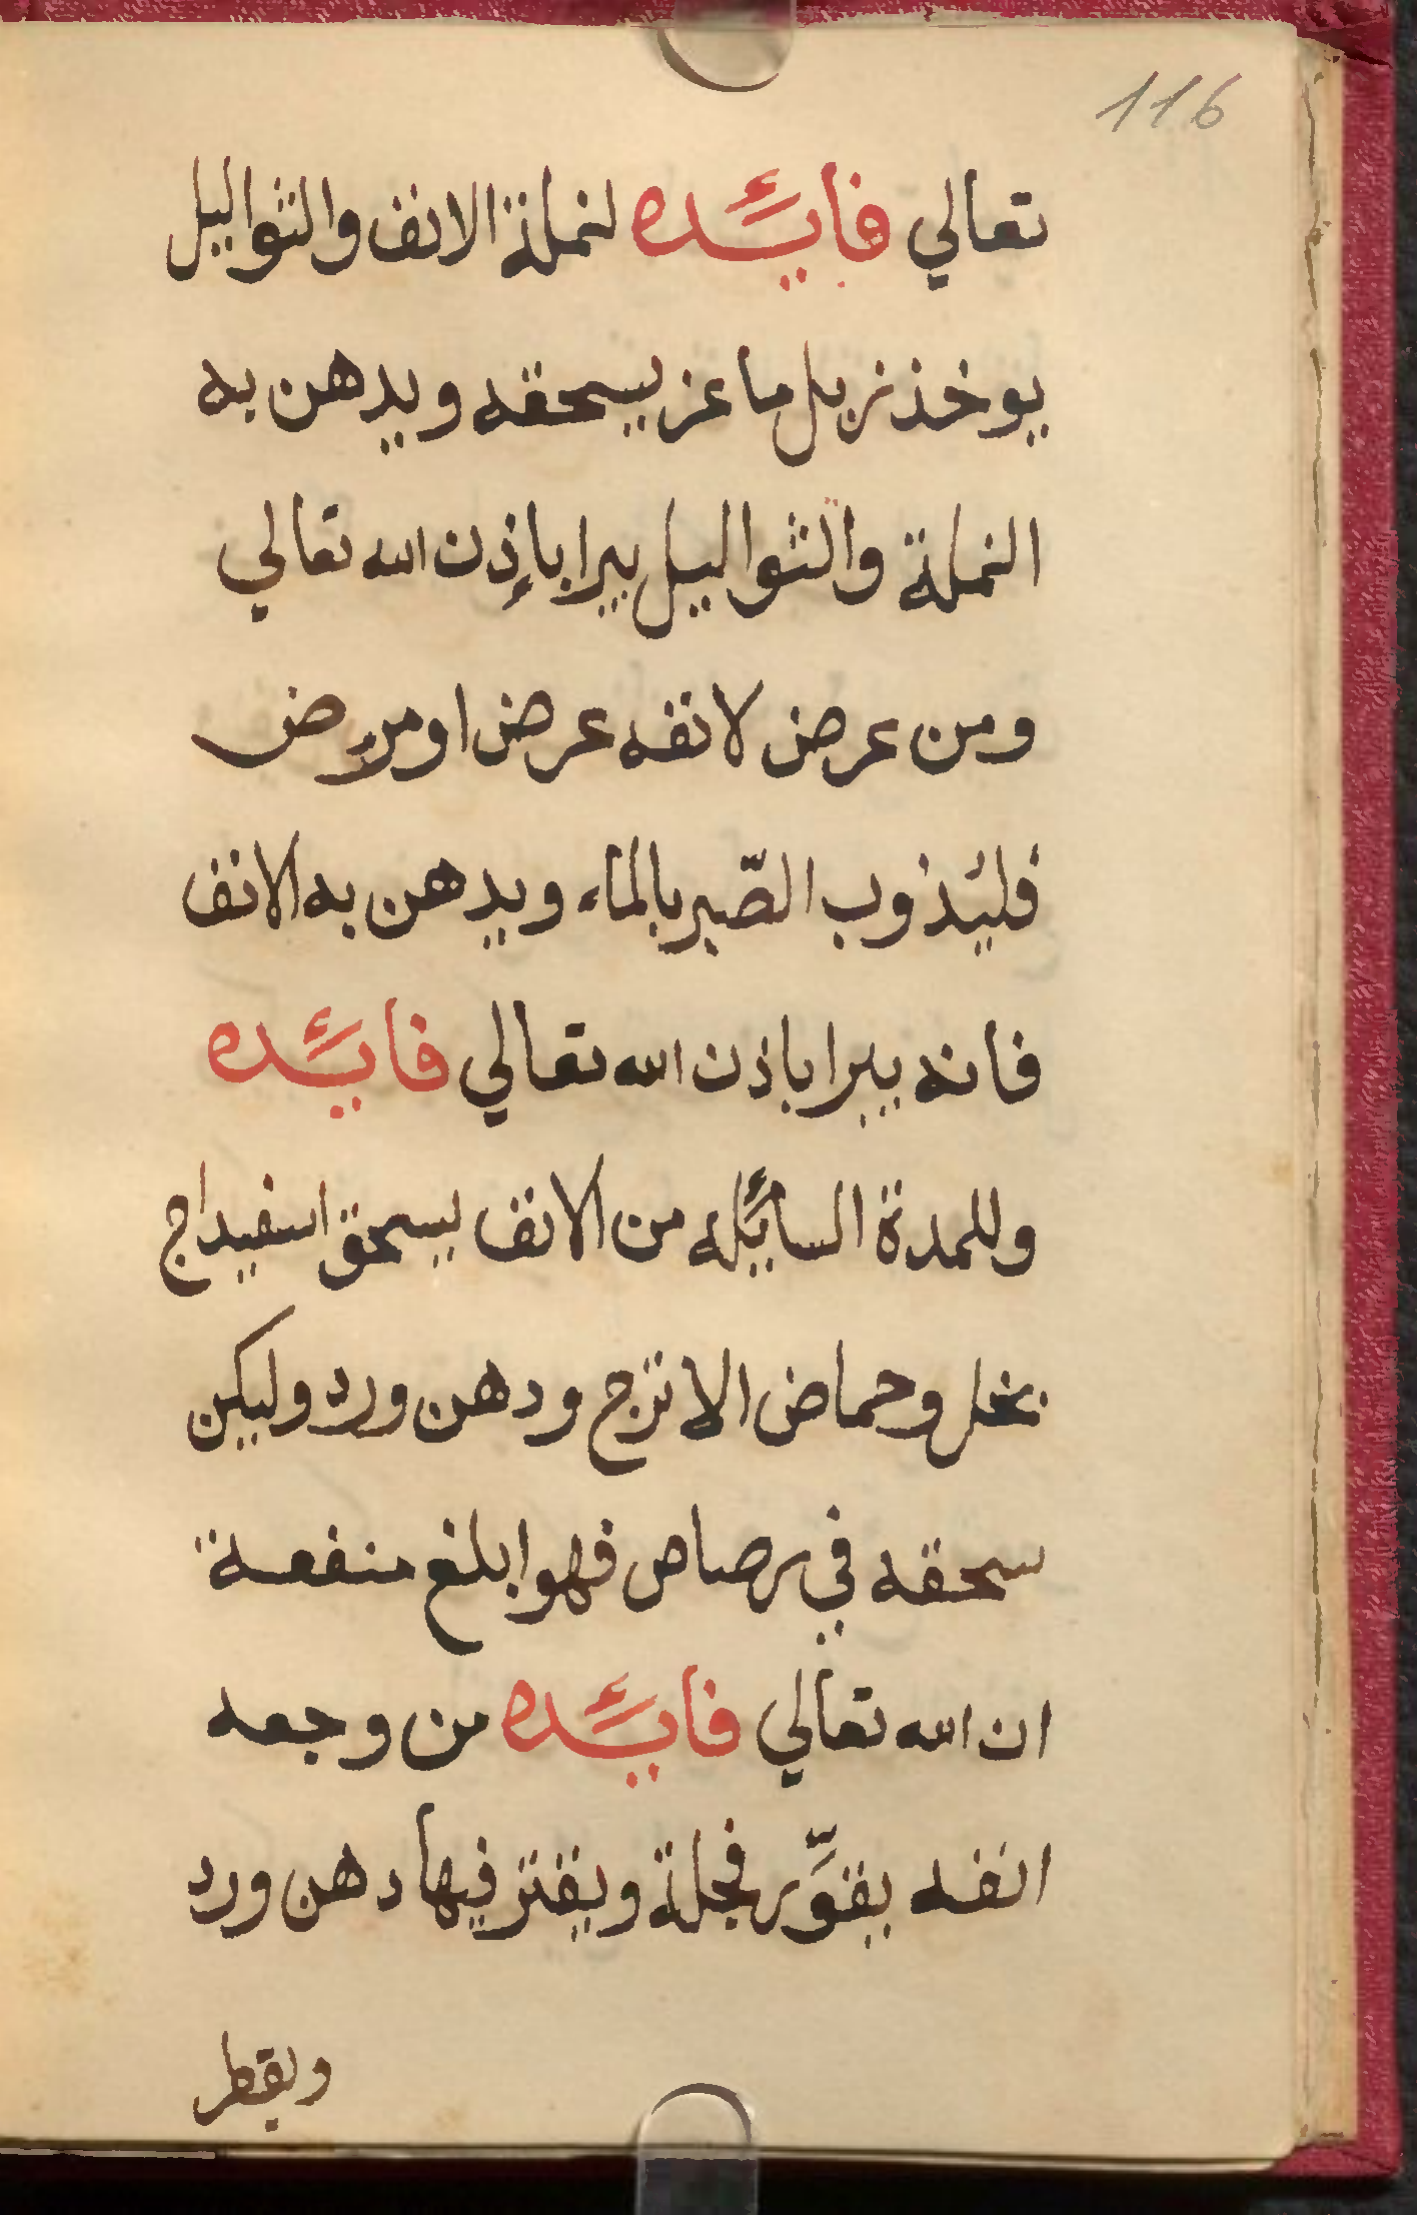 116
تعالي فايئده لنملة الانف والثواليل
يوخذ زبل ماعز يسحقه ويدهن به
النملة والثواليل يبرا بإذن الله تعالي
ومن عرض لانفه عرض او مرض
فليذوب الصّبر بالماء ويدهن به الانف
فانه يبرا باذن الله تعالي فايئده
وللمدة السايئله من الانف يسحق اسفيداج
بخل وحماض الاترج ودهن ورد وليكن
سحقه في رصاص فهو ابلغ منفعة
ان الله تعالي فايئده من وجعه
انفه يقوّر فجلة ويفتر فيها دهن ورد
ويقطر